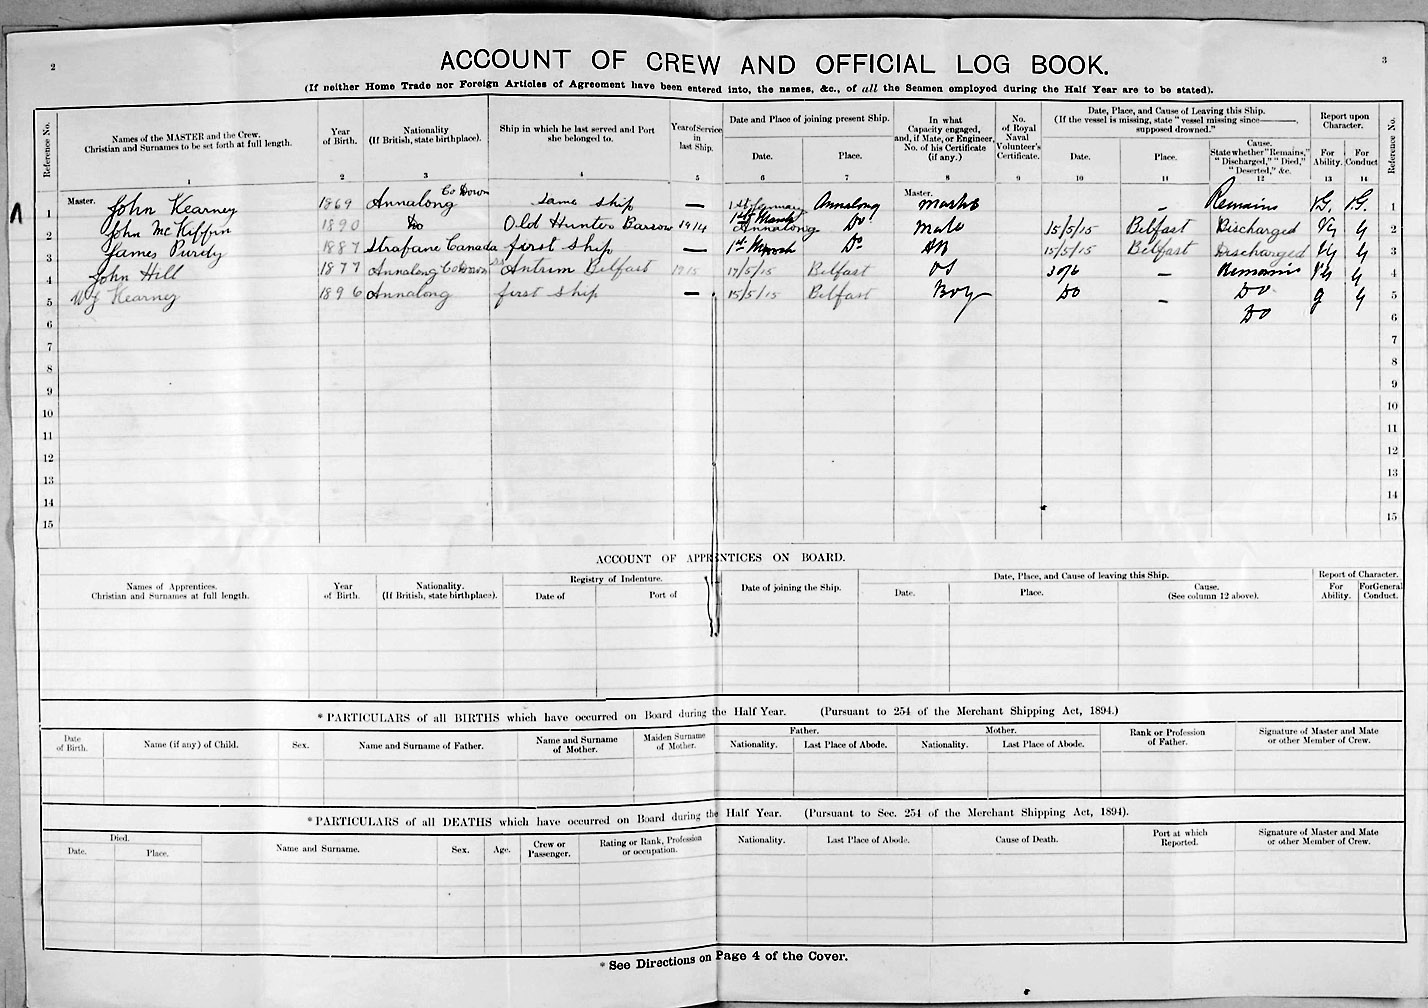 2
3
ACCOUNT OF CREW AND OFFICIAL LOG BOOK.
(If neither Home Trade nor Foreign Articles of Agreement have been entered into, the names, &c., of all the Seamen employed during the Half Year are to be stated).
Reference No.
Names of the MASTER and the Crew. Christian and Surnames to be set forth at full length.
Year of Birth.
Nationality (If British, state birthplace).
Ship in which he last served and Port she belonged to.
Year of Service in last Ship.
Date and Place of joining present Ship.
Date.
Place.
In what Capacity engaged, and, if Mate, or Engineer, No. of his Certificate (if any.)
No. of Royal Naval Volunteer's Certificate.
Date, Place, and Cause of Leaving this Ship.
(If the vessel is missing, state "vessel missing since——, supposed drowned."
Date.
Place.
Cause. State whether "Remains," "Discharged," "Died," "Deserted," &c.
Report upon Character.
For Ability.
For Conduct
Reference No.
1 2 3 4 5 6 7 8 9 10 11 12 13 14
1 Master. John Kearney 1869 Annalong Co Down same ship — Annalong Master. Master — Remains V.G. V.G. 1
2 John McKiffin 1890 Do Old Hunter Barrow 1914 1st March Annalong Do Mate 15/5/15 Belfast Discharged Vg g 2
3 James Purdy 1887 Strafane Canada first ship — 1st March Do AB 15/5/15 Belfast Discharged Vg g 3
4 John Hill 1877 Annalong Co Down SS Antrim Belfast 1915 17/5/15 Belfast OS 30/6 — Remains Vg g 4
5 W J Kearney 1896 Annalong first ship — 15/5/15 Belfast Boy Do — Do g g 5
6 Do 6
7 7
8 8
9 9
10 10
11 11
12 12
13 13
14 14
15 15
ACCOUNT OF APPRENTICES ON BOARD.
Names of Apprentices. Christian and Surnames at full length.
Year of Birth.
Nationality. (If British, state birthplace).
Registry of Indenture.
Date of
Port of
Date of joining the Ship.
Date, Place, and Cause of leaving this Ship.
Date.
Place.
Cause. (See column 12 above).
Report of Character.
For Ability.
For General Conduct.
*PARTICULARS of all BIRTHS which have occurred on Board during the Half Year. (Pursuant to 254 of the Merchant Shipping Act, 1894.)
Date of Birth.
Name (if any) of Child.
Sex.
Name and Surname of Father.
Name and Surname of Mother.
Maiden Surname of Mother.
Father.
Nationality.
Last Place of Abode.
Mother.
Nationality.
Last Place of Abode.
Rank or Profession of Father.
Signature of Master and Mate or other Member of Crew.
*PARTICULARS of all DEATHS which have occurred on Board during the Half Year. (Pursuant to Sec. 254 of the Merchant Shipping Act, 1894).
Died.
Date.
Place.
Name and Surname.
Sex.
Age.
Crew or Passenger.
Rating or Rank, Profession or occupation.
Nationality.
Last Place of Abode.
Cause of Death.
Port at which Reported.
Signature of Master and Mate or other Member of Crew.
*See Directions on Page 4 of the Cover.